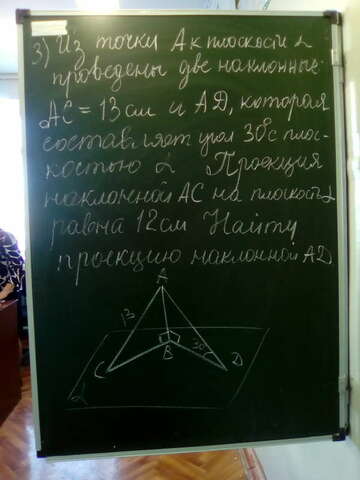 3) Из точки А к плоскости α
проведены две наклонные:
АС = 13 см и АД, которая
составляет угол 30° с плос-
костью α Проекция
наклонной АС на плоскость α
равна 12 см Найти
проекцию наклонной АД
А
13
С
В
30°
D
α